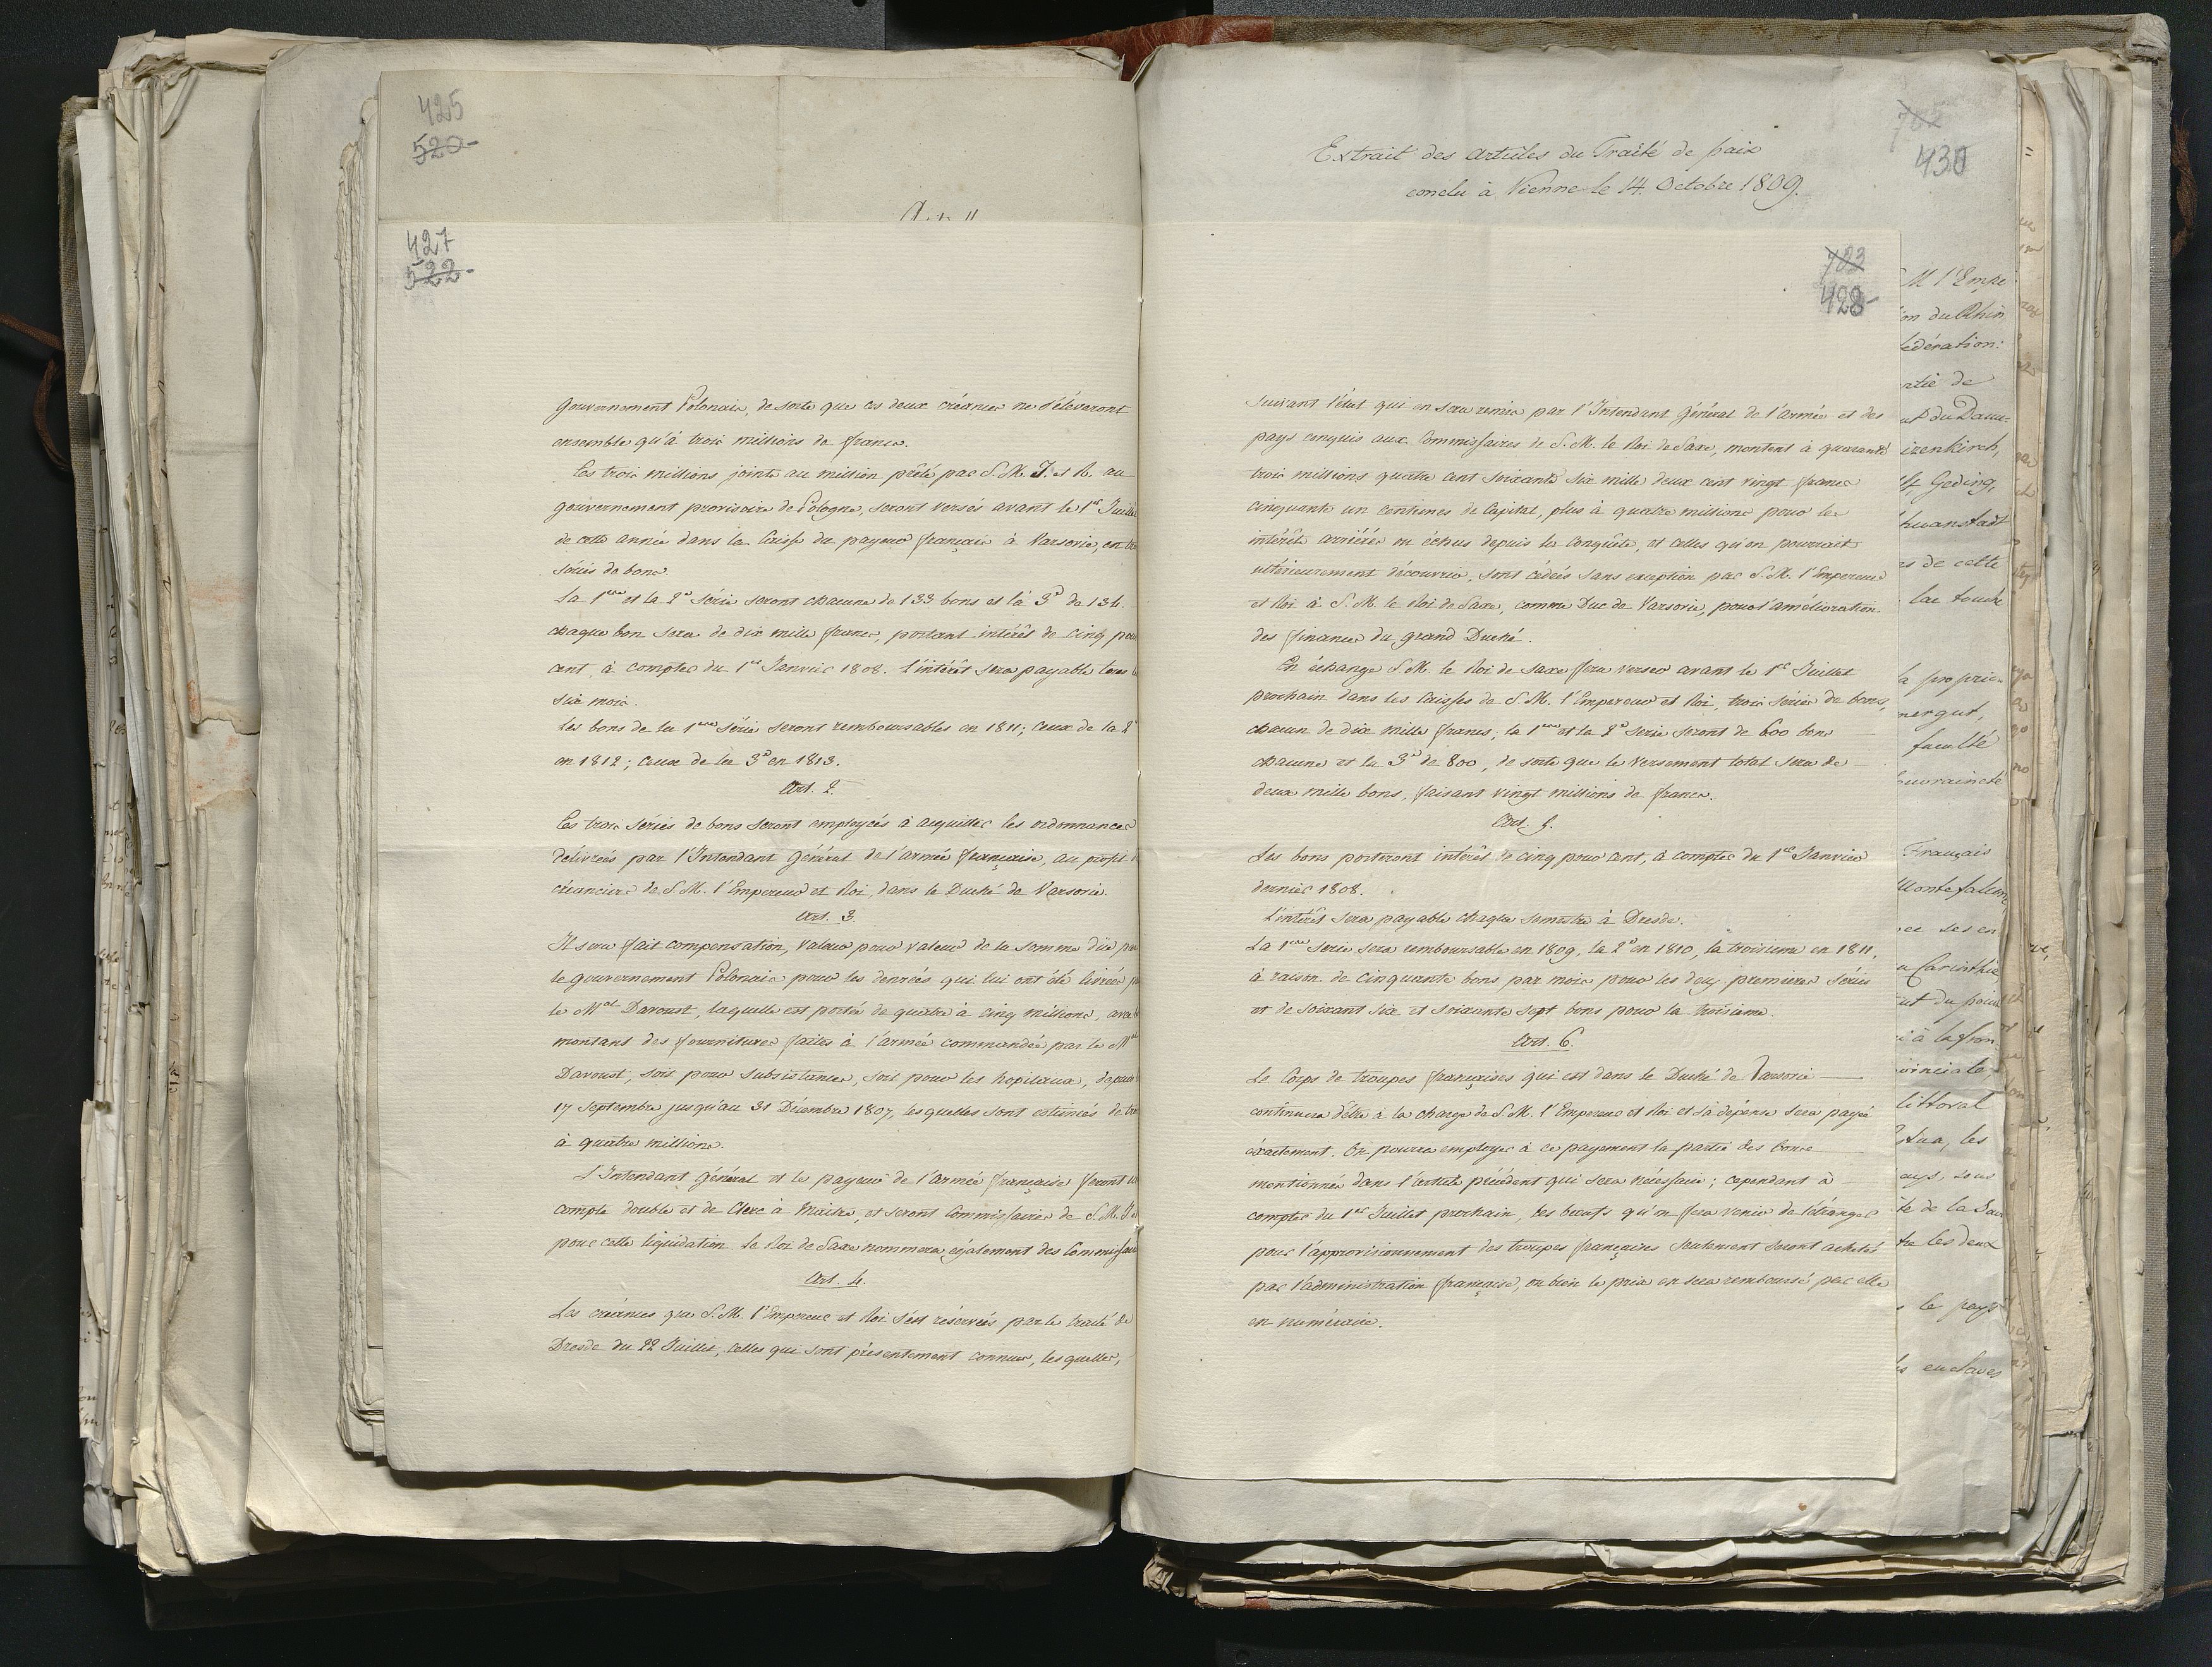 425
520
427
522
gouvernement Polonais, de sorte que ces deux créances ne s'élèveront
ensemble qu'à trois millions de francs.
Ces trois millions joints au million prêté par S. M. I. et R. au
gouvernement provisoire de Pologne, seront versés avant le 1er Juillet
de cette année dans la Caisse du payeur français à Varsovie, en
séries de bons.
La 1ere et la 2e série seront chacune de 133 bons et la 3e de 134.
chaque bon sera de dix mille francs, portant intérêt de cinq pour
cent, à compter du 1er Janvier 1808. l'intérêt sera payable tous
six mois.
Les bons de la 1ere série seront remboursables en 1811; ceux de la 2e
en 1812; ceux de la 3e en 1813.
Art. 2.
Ces trois séries de bons seront employées à acquitter les ordonnances
délivrées par l'Intendant général de l'armée française, au profit
créanciers de S. M. l'Empereur et Roi, dans le Duché de Varsovie.
Art. 3.
Il sera fait compensation, valeur pour valeur de la somme düe par
le gouvernement Polonais pour les denrées qui lui ont été livrées
le Mal Davoust, laquelle est portée de quatre à cinq millions, avec
montant des fournitures faites à l'armée commandée par le Mal
Davoust, soit pour subsistances, soit pour les hopitaux, depuis
17 Septembre jusqu'au 31 Décembre 1807, lesquelles sont estimées de
à quatre millions.
L'Intendant général et le payeur de l'armée française feront
compte double et de Clerc à Maître, et seront Commissaires de S. M. I. et
pour cette liquidation. Le Roi de Saxe nommera également des Commissaires
Art. 4.
Les créances que S. M. l'Empereur et Roi s'est réservées par le traité de
Dresde du 22 Juillet, celles qui sont présentement connues, lesquelles,
Extrait des articles du Traité de paix
conclu à Vienne le 14. Octobre 1809.
430
428
suivant l'état qui en sera remis par l'Intendant général de l'armée et des
pays conquis aux Commissaires de S. M. le Roi de Saxe, montent à quarante
trois millions quatre cent soixante six mille deux cent vingt francs
cinquante un centimes de Capital, plus à quatre millions pour les
intérêts arriérés ou échus depuis la Conquête, et celles qu'on pourrait
ultérieurement découvrir, sont cédées sans exception par S. M. l'Empereur
et Roi à S. M. le Roi de Saxe, comme Duc de Varsovie, pour l'amélioration
des finances du grand Duché.
En échange S. M. le Roi de Saxe fera verser avant le 1er Juillet
prochain dans les Caisses de S. M. l'Empereur et Roi, trois séries de bons,
chacun de dix mille francs; la 1ere et la 2e série seront de 600 bons
chacune et la 3e de 800, de sorte que le versement total sera de
deux mille bons, faisant vingt millions de francs.
Art. 5.
Les bons porteront intérêt de cinq pour cent, à compter du 1er Janvier
dernier 1808.
L'intérêt sera payable chaque semestre à Dresde.
La 1ere série sera remboursable en 1809, la 2e en 1810, la troisieme en 1811,
à raison de cinquante bons par mois pour les deux premières séries
et de soixant six et soixante sept bons pour la troisieme.
Art. 6.
Le Corps de troupes françaises qui est dans le Duché de Varsovie
continuera d'être à la charge de S. M. l'Empereur et Roi et sa dépense sera payée
exactement. On pourra employer à ce payement la partie des bons
mentionnés dans l'article précédent qui sera nécessaire; cependant à
compter du 1er Juillet prochain, les bœufs qu'on fera venir de l'étranger
pour l'approvisionnement des troupes françaises seulement seront achetés
par l'administration française, ou bien le prix en sera remboursé par elle
en numéraire.
M l'Empe
du Rhin
dération:
de
izenkirch,
Geding,
de cette
lac
la
faculté
Français
Montefalcone
Carinthie
littoral
les
sous
de la Save
les deux
le pays
enclaves